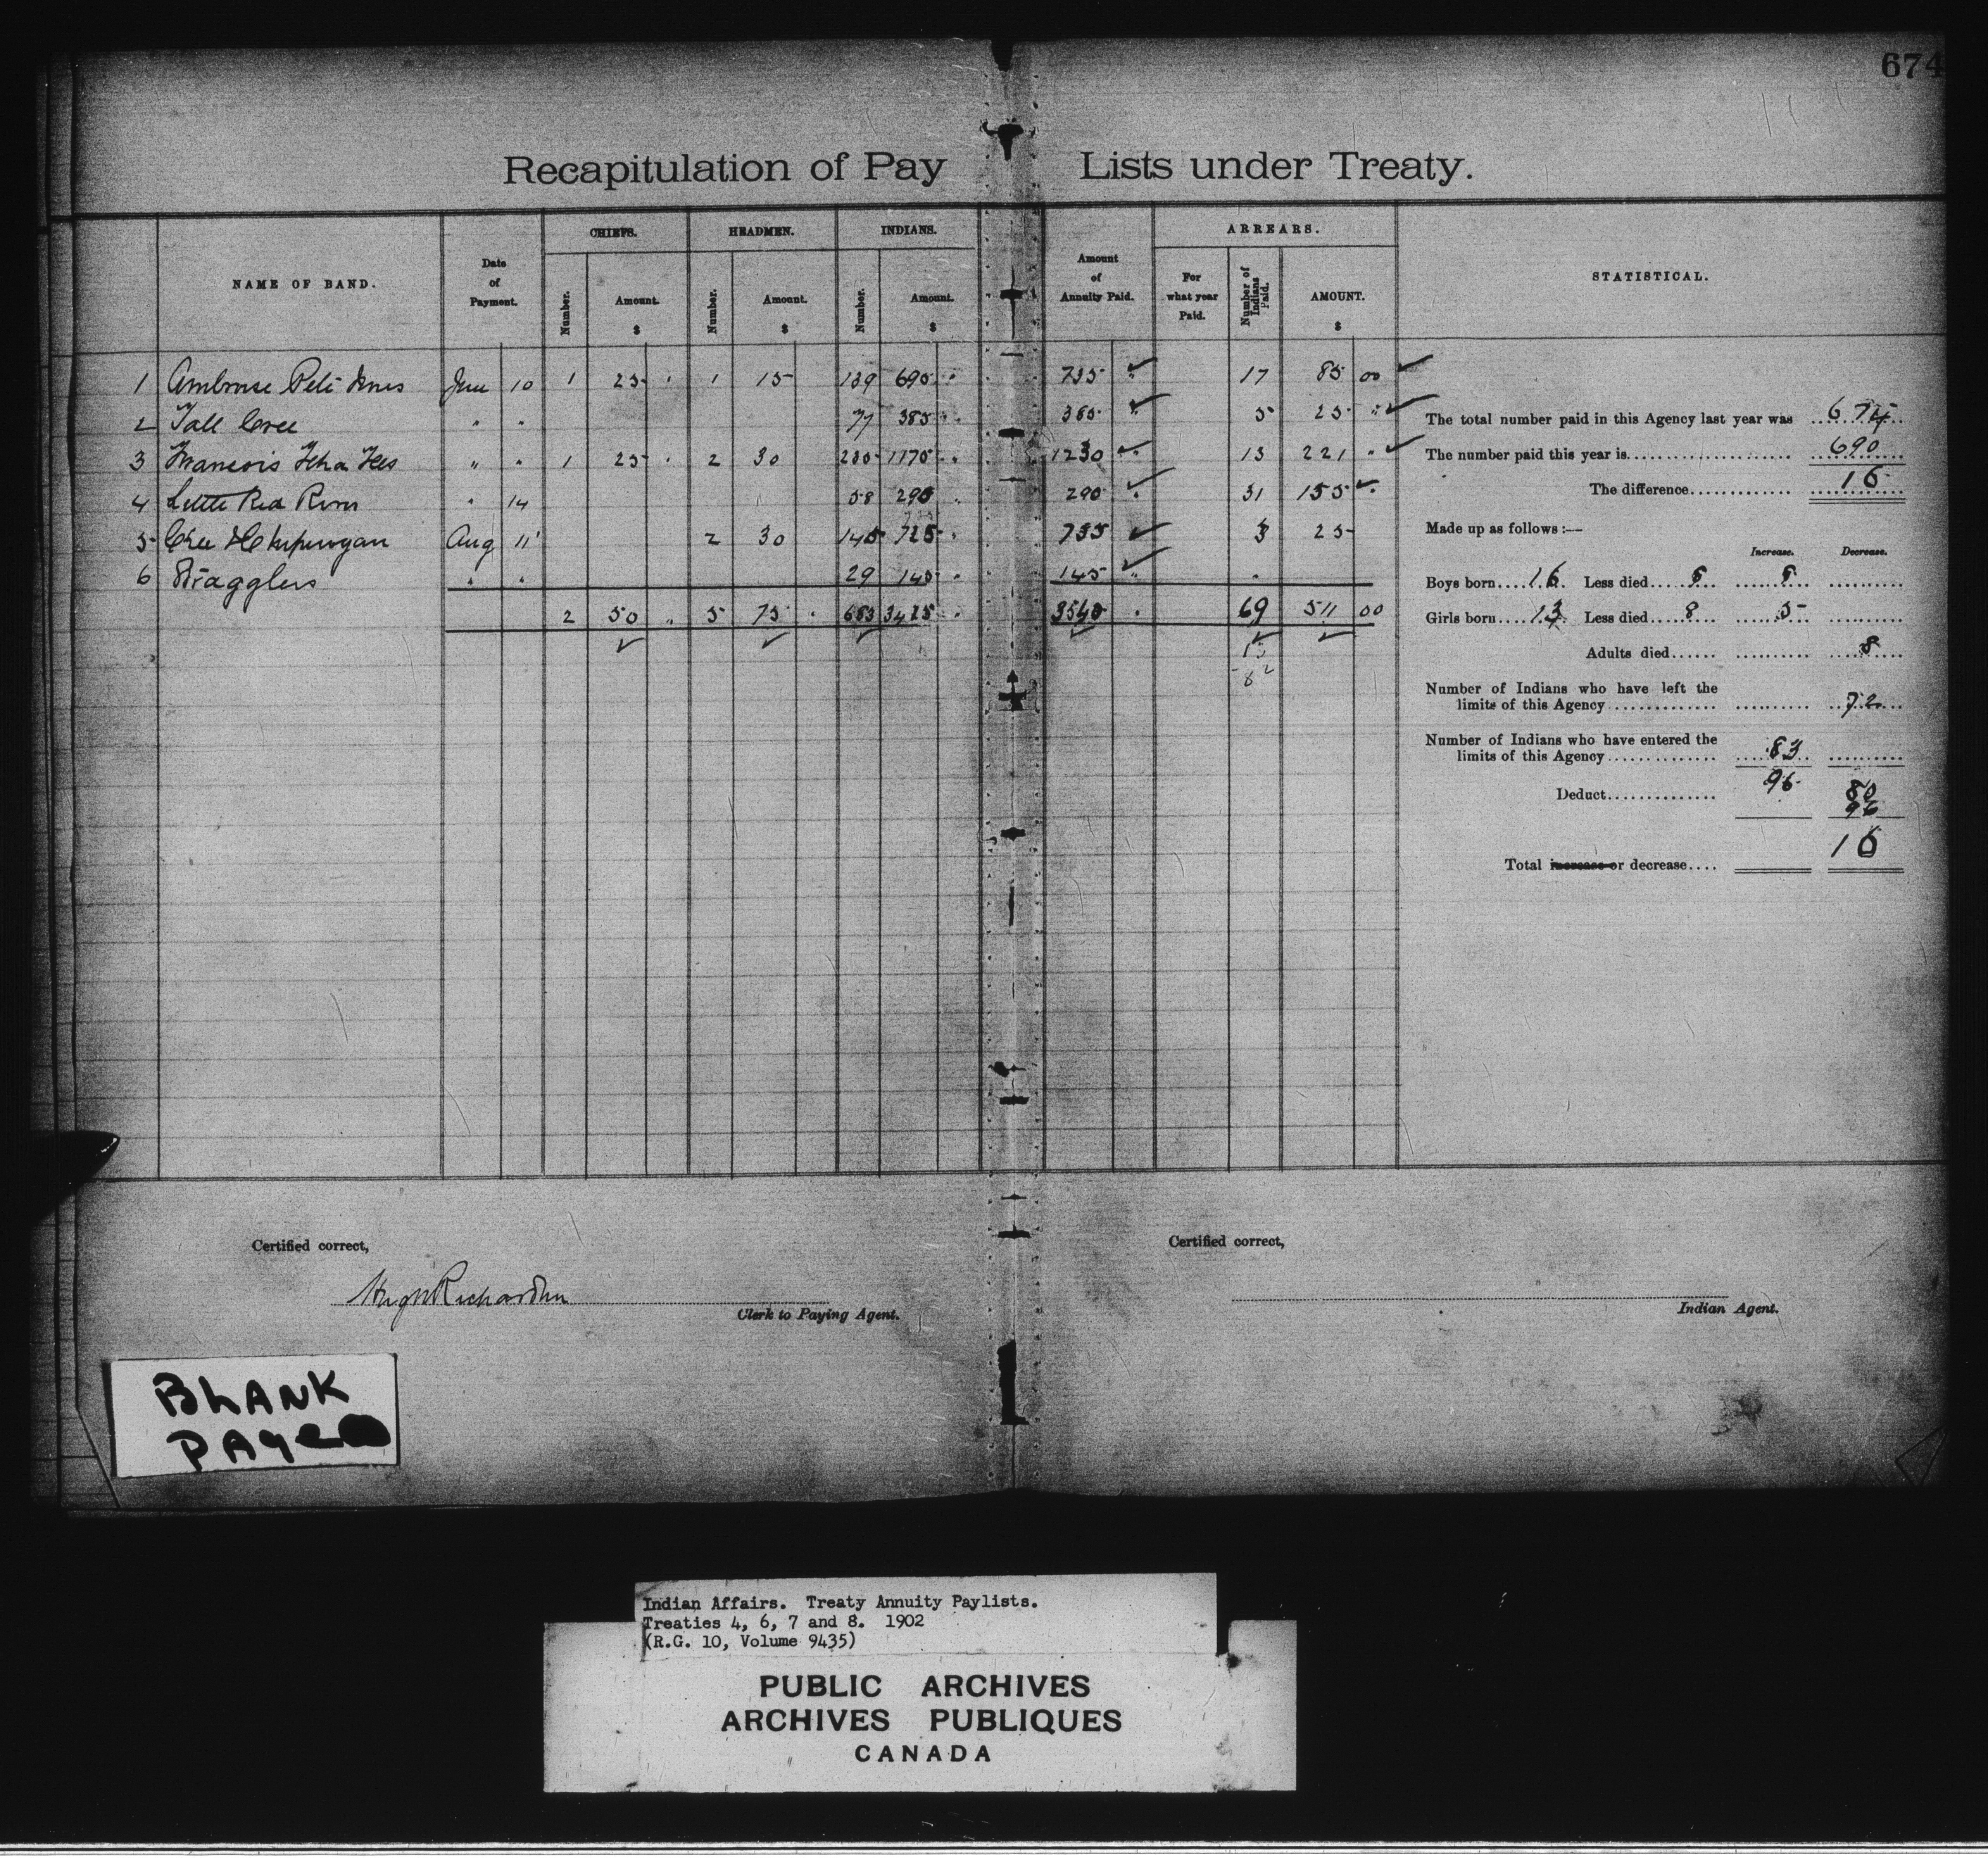 674
Recapitulation of Pay Lists under Treaty.
NAME OF BAND. Date of Payment. CHIEFS. HEADMEN. INDIANS. Amount of Annuity Paid. ARREARS. STATISTICAL.
Number. Amount. $ Number. Amount. $ Number. Amount. $ For what year Paid. Number of Indians Paid. AMOUNT. $
1 Ambrose Tete Noir June 10 1 25 1 15 139 695 735 17 85 00
2 Tall Cree " " 77 385 385 5 25 "
3 Francois " " 1 25 2 30 235 1175 1230 13 221 "
4 Little Red River " 14 58 290 290 31 155
5 Cree & Chipewyan Aug 11 2 30 145 725 755 3 25
6 Stragglers " " 29 145 145
2 50 5 75 683 3415 3540 69 511 00
13
82
The total number paid in this Agency last year was 674
The number paid this year is 690
The difference 16
Made up as follows:—
Increase. Decrease.
Boys born 16 Less died 8 8
Girls born 13 Less died 8 5
Adults died 8
Number of Indians who have left the
limits of this Agency 72
Number of Indians who have entered the
limits of this Agency 83
Deduct 96 80
96
16
Total increase or decrease
Certified correct,
Hugh Richardson
Clerk to Paying Agent.
Certified correct,
Indian Agent.
BLANK
PAGE
Indian Affairs. Treaty Annuity Paylists.
Treaties 4, 6, 7 and 8. 1902
(R.G. 10, Volume 9435)
PUBLIC ARCHIVES
ARCHIVES PUBLIQUES
CANADA